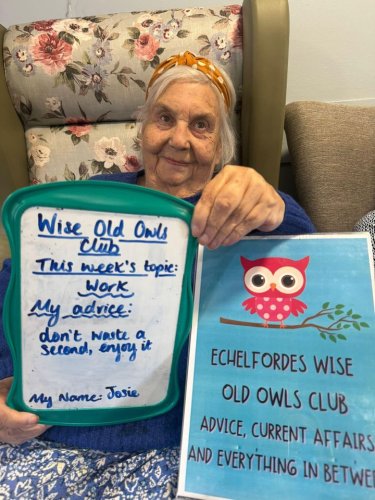 Wise Old Owls
Club
This week's topic:
Work
My advice:
don't waste a
second, enjoy it
My Name: Josie
ECHELFORDES WISE
OLD OWLS CLUB
ADVICE, CURRENT AFFAIRS
AND EVERYTHING IN BETWE